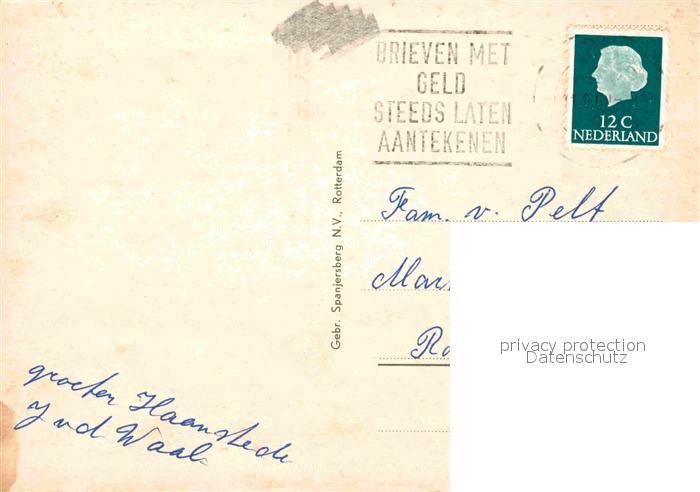 BRIEVEN MET
GELD
STEEDS LATEN
AANTEKENEN
12 C
NEDERLAND
Gebr. Spanjersberg N.V., Rotterdam
Fam. v. Pelt
privacy protection
Datenschutz
groeten Haamstede
J vd Waal